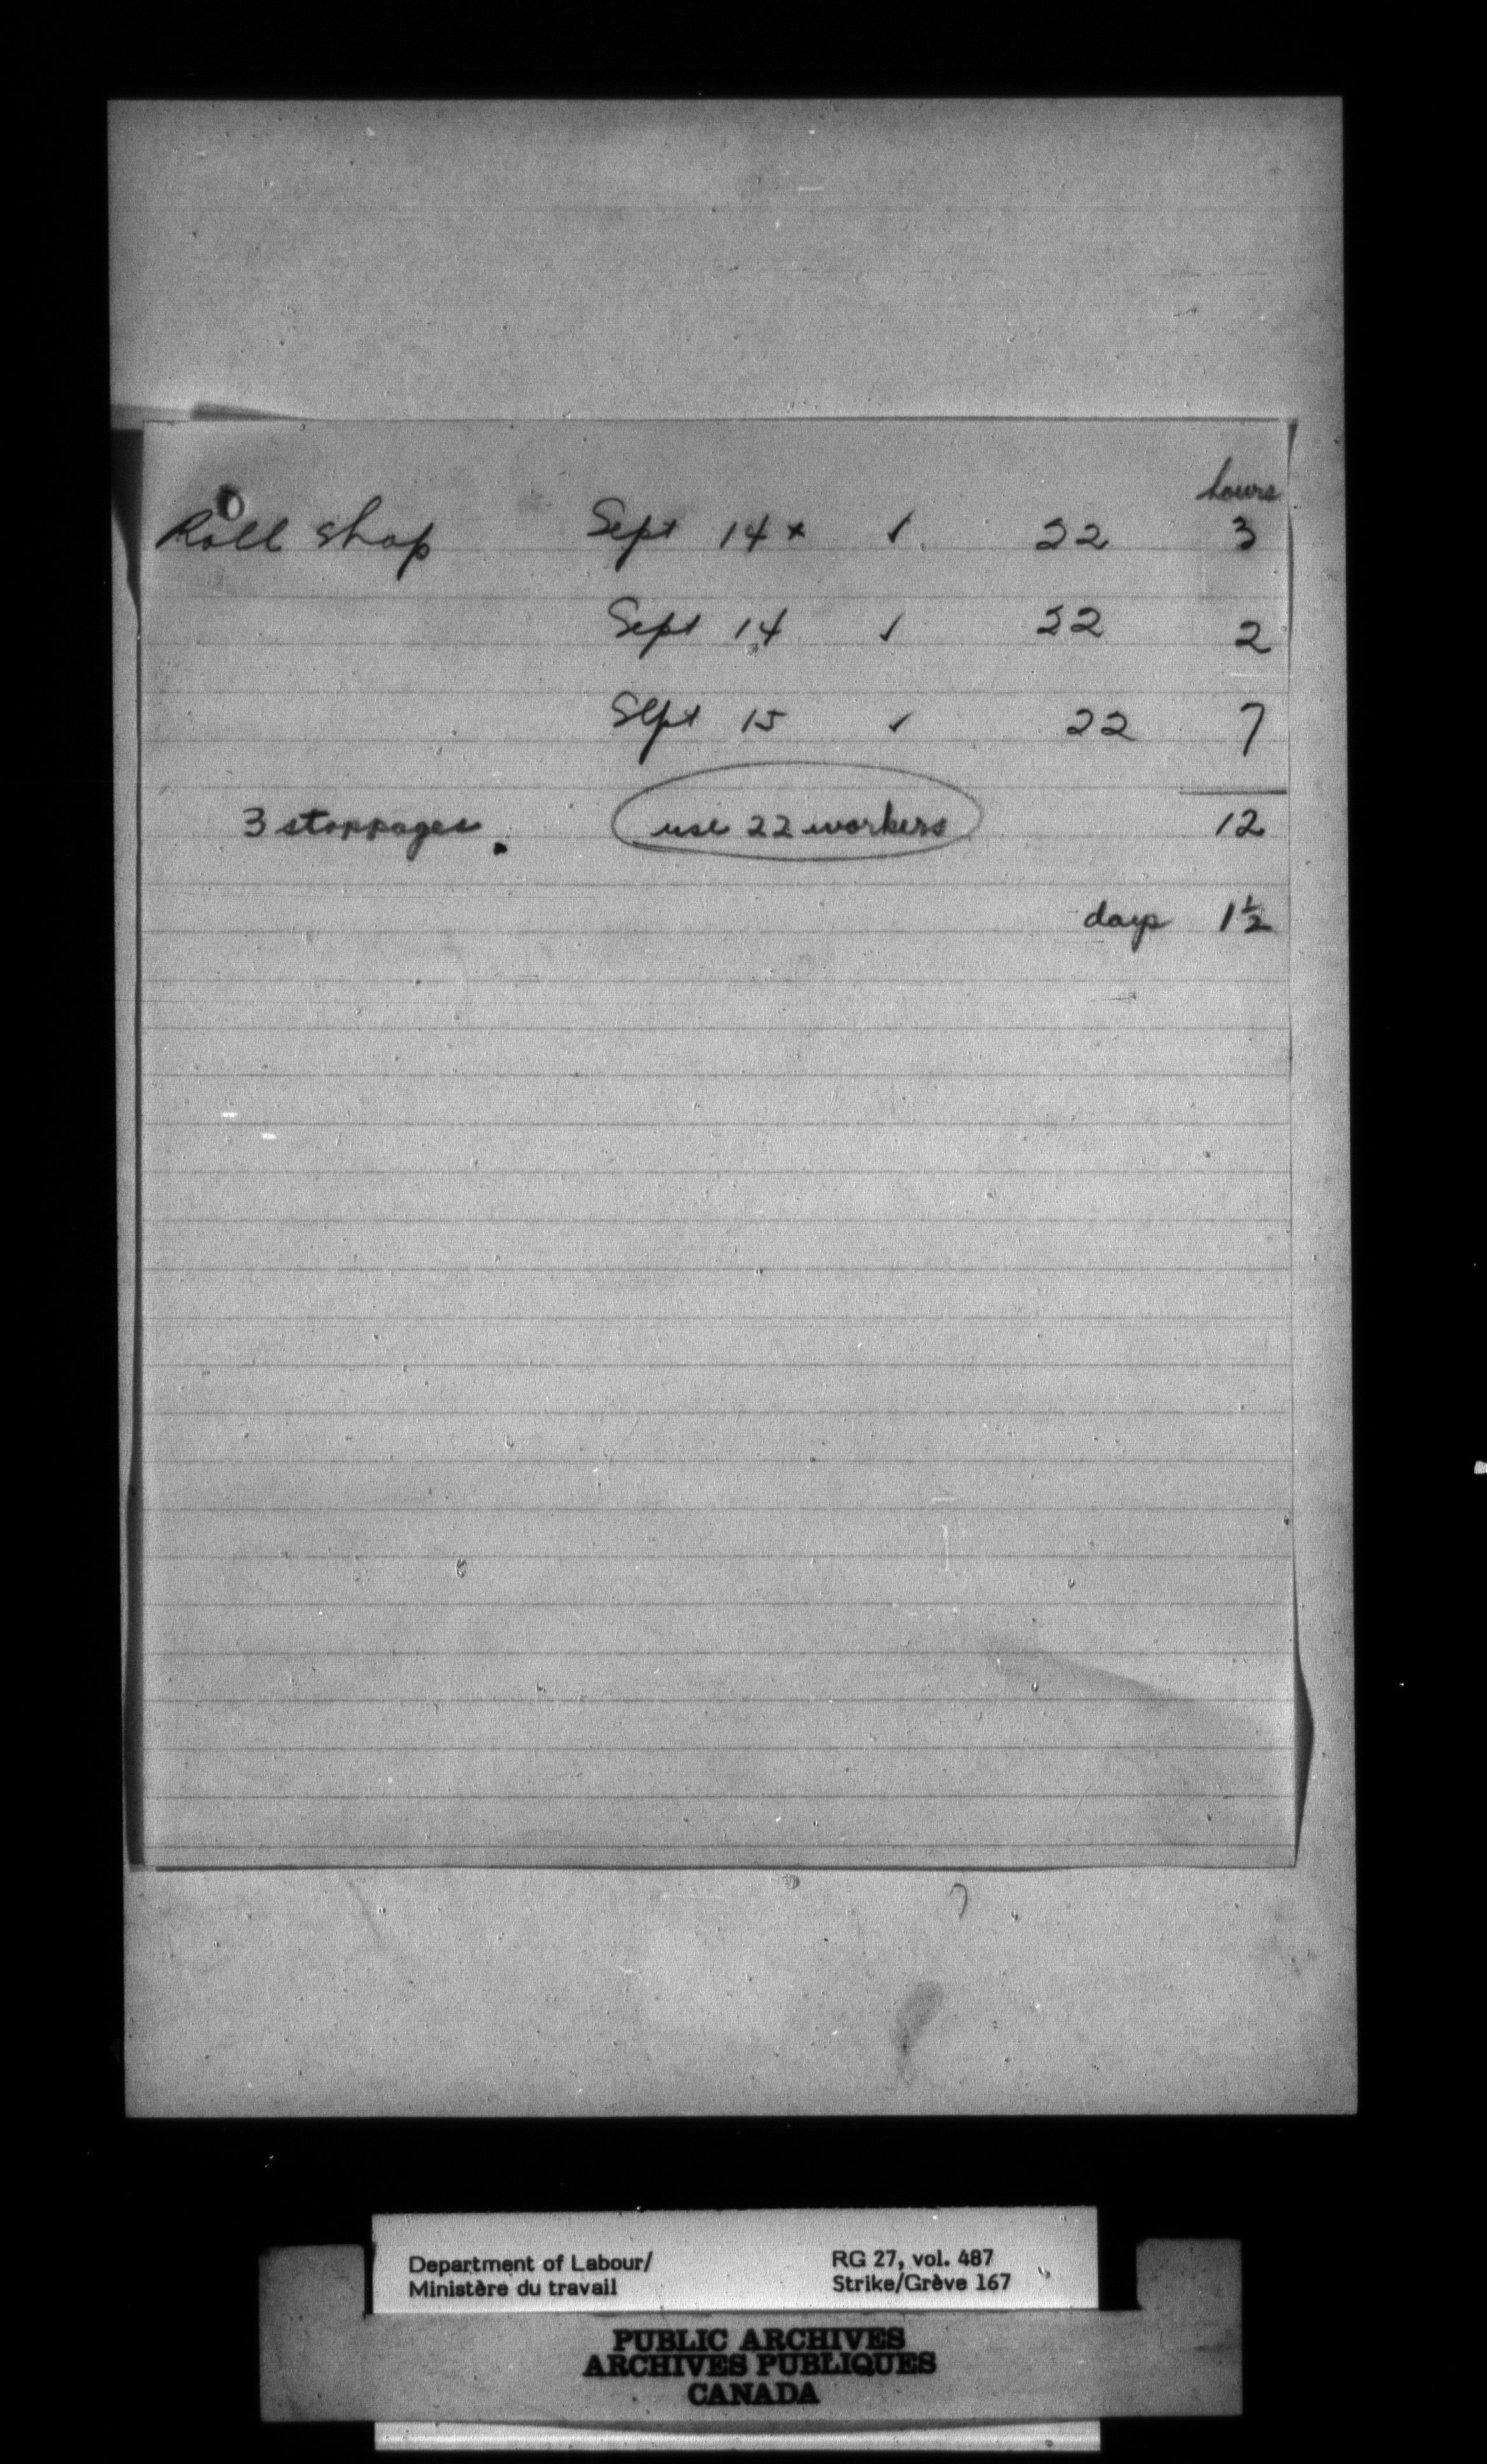 hours
Roll shop Sept 14 x ✓ 22 3
Sept 14 ✓ 22 2
Sept 15 ✓ 22 7
3 stoppages. use 22 workers 12
days 1½
Department of Labour/ RG 27, vol. 487
Ministère du travail Strike/Grève 167
PUBLIC ARCHIVES
ARCHIVES PUBLIQUES
CANADA